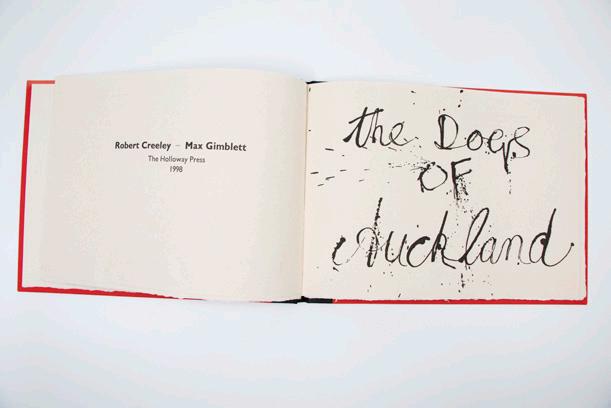 Robert Creeley – Max Gimblett
The Holloway Press
1998
the Dogs
OF
Auckland